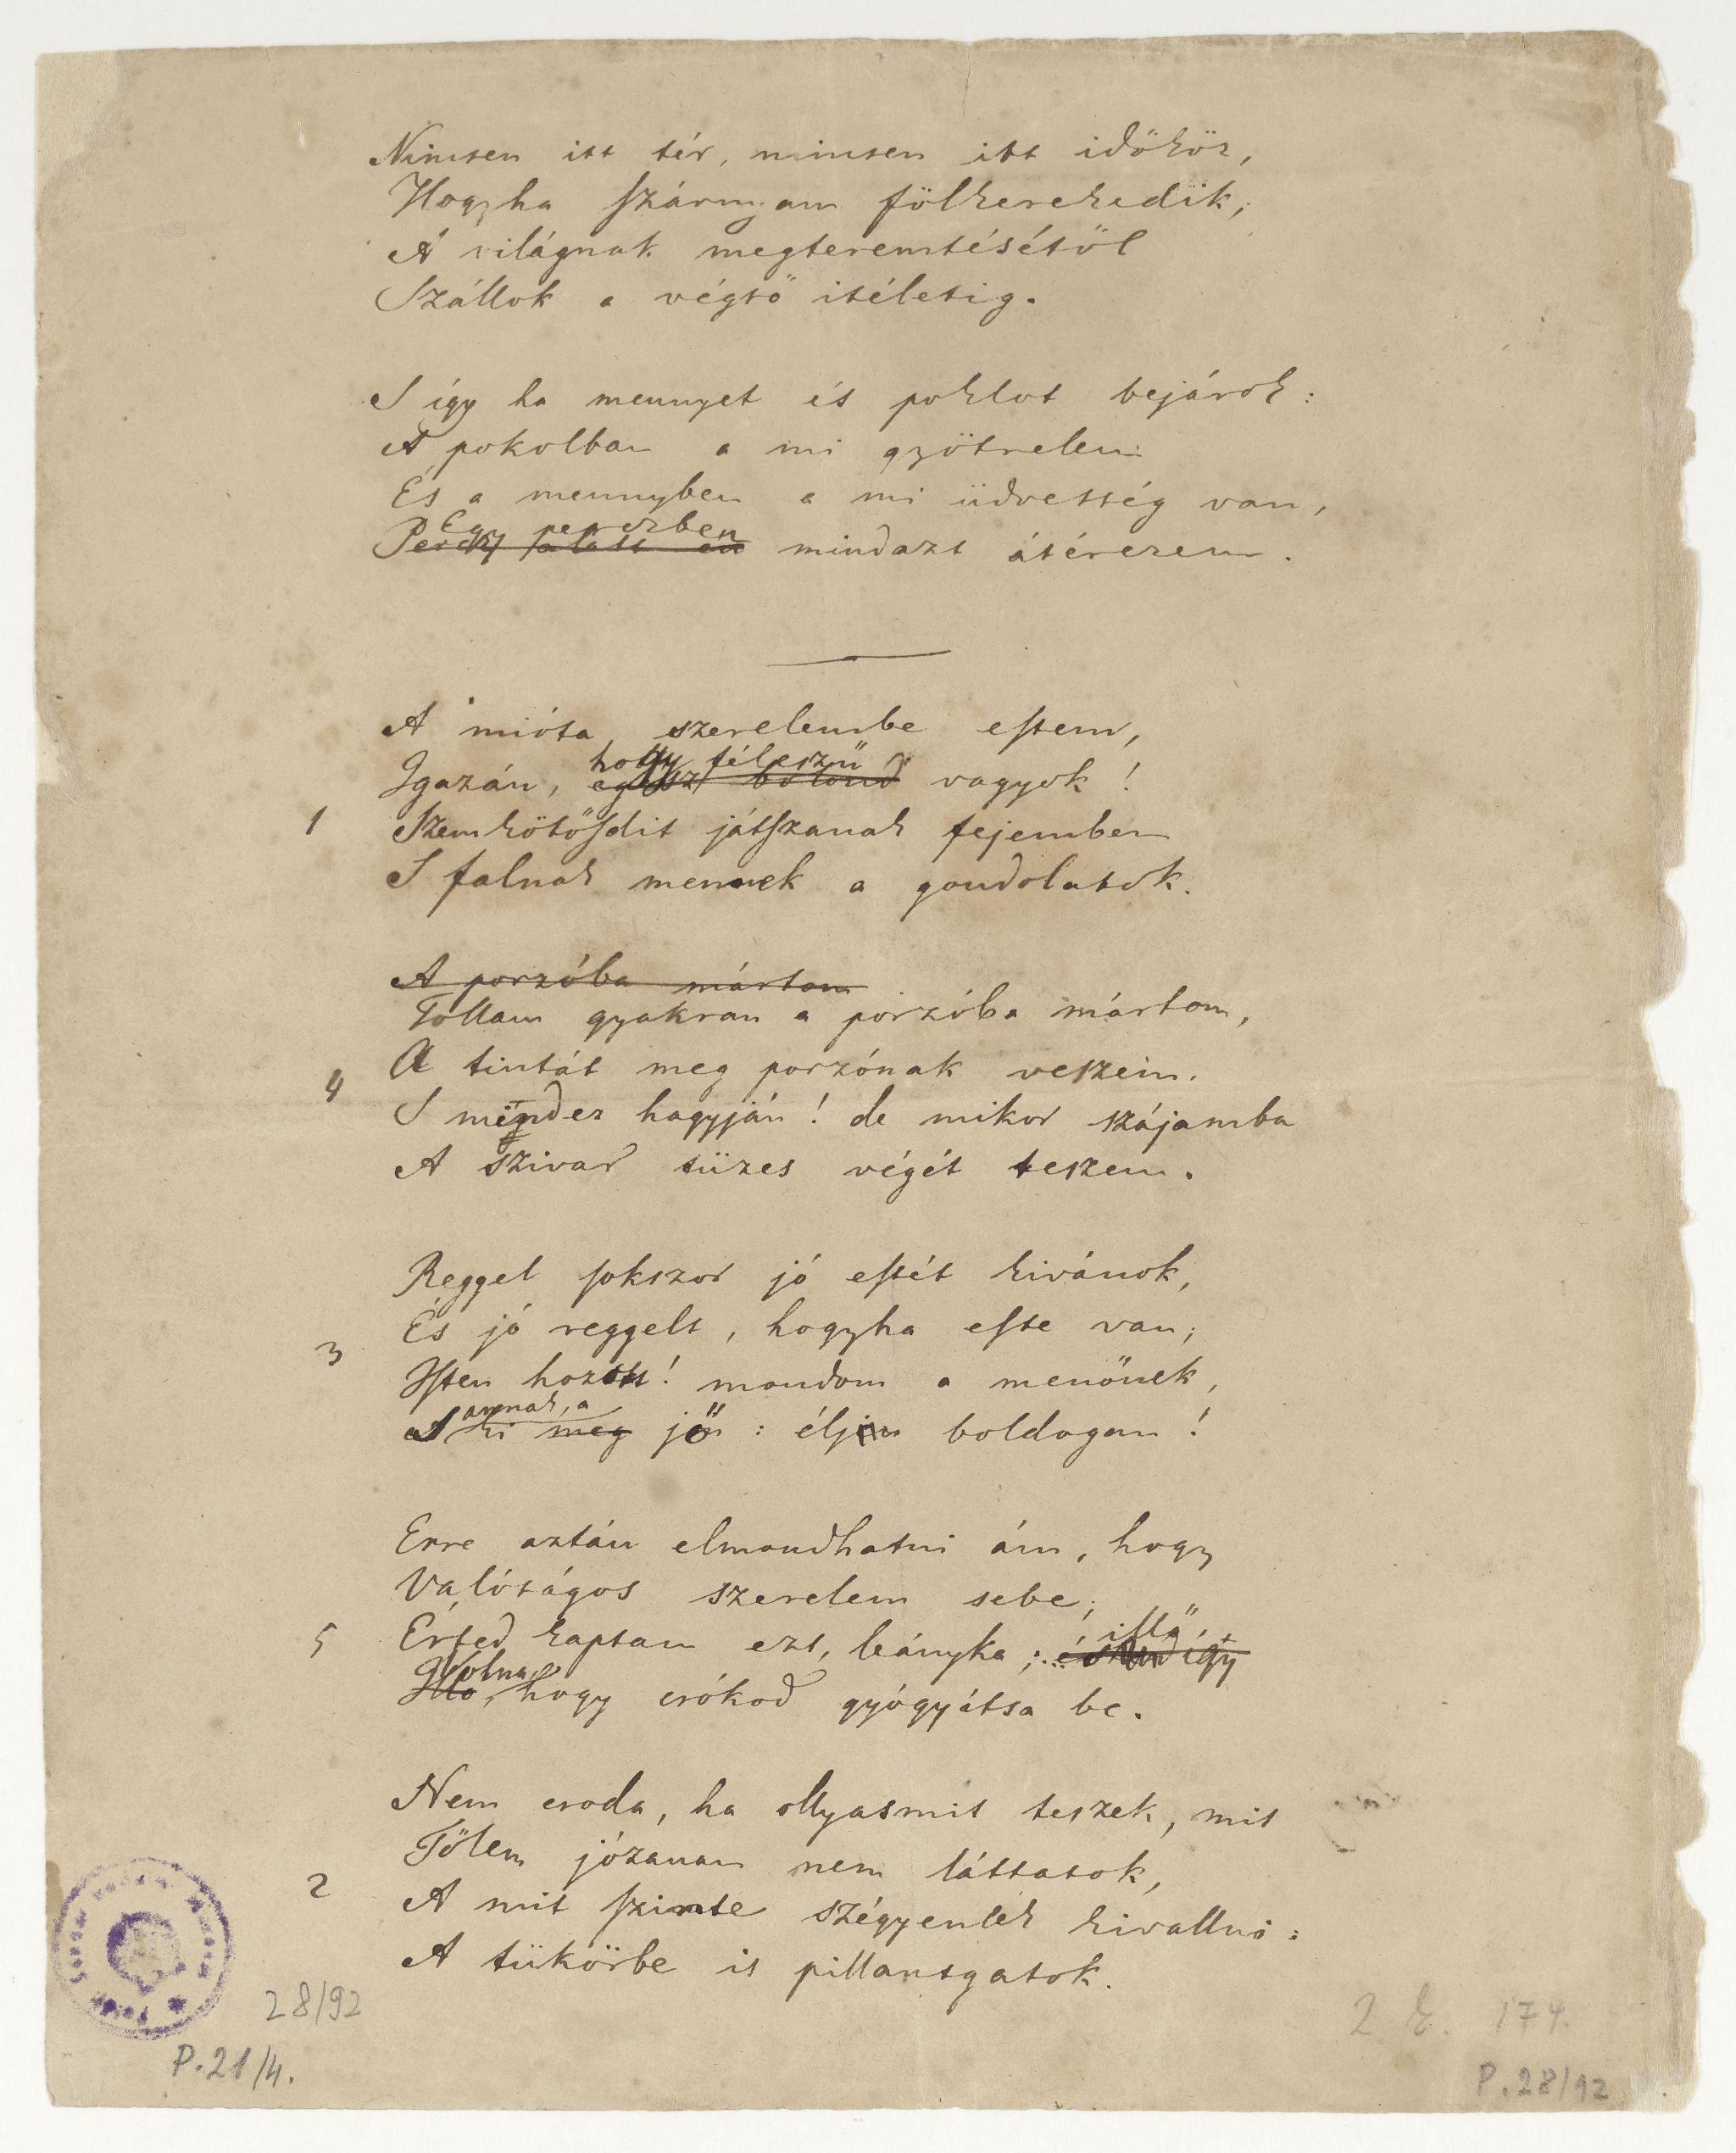 Nincsen itt tér, nincsen itt időkör,
Hogyha szárnyam fölkerekedik;
A világnak megteremtésétől
Szállok a végső itéletig.
S így ha mennyet és poklot bejárok:
A pokolban a mi gyötrelem
És a mennyben a mi üdvesség van,
Egy perczben
Percz alatt én mindazt átérezem.
A mióta szerelembe estem,
hogy féleszű
Igazán, egész bolond vagyok!
1 Szemkötősdit játszanak fejemben
S falnak mennek a gondolatok.
A porzóba mártom
Tollam gyakran a porzóba mártom,
A tintát meg porzónak veszem.
4
S mindez hagyján! de mikor szájamba
A szivar tüzes végét teszem.
Reggel sokszor jó estét kivánok,
És jó reggelt, hogyha este van;
3
Isten hozott! mondom a menőnek,
annak, a
S ki meg jő: éljen boldogan!
Erre aztán elmondhatni ám, hogy
Valóságos szerelem sebe;
illő,
5 Érted kaptam ezt, leányka; így
Volna,
Illő, hogy csókod gyógyítsa be.
Nem csoda, ha ollyasmit teszek, mit
Tőlem józanan nem láttatok,
2
A mit szinte szégyenlek kivallni:
A tükörbe is pillantgatok.
28/92
P.21/4.
174.
P.28/92